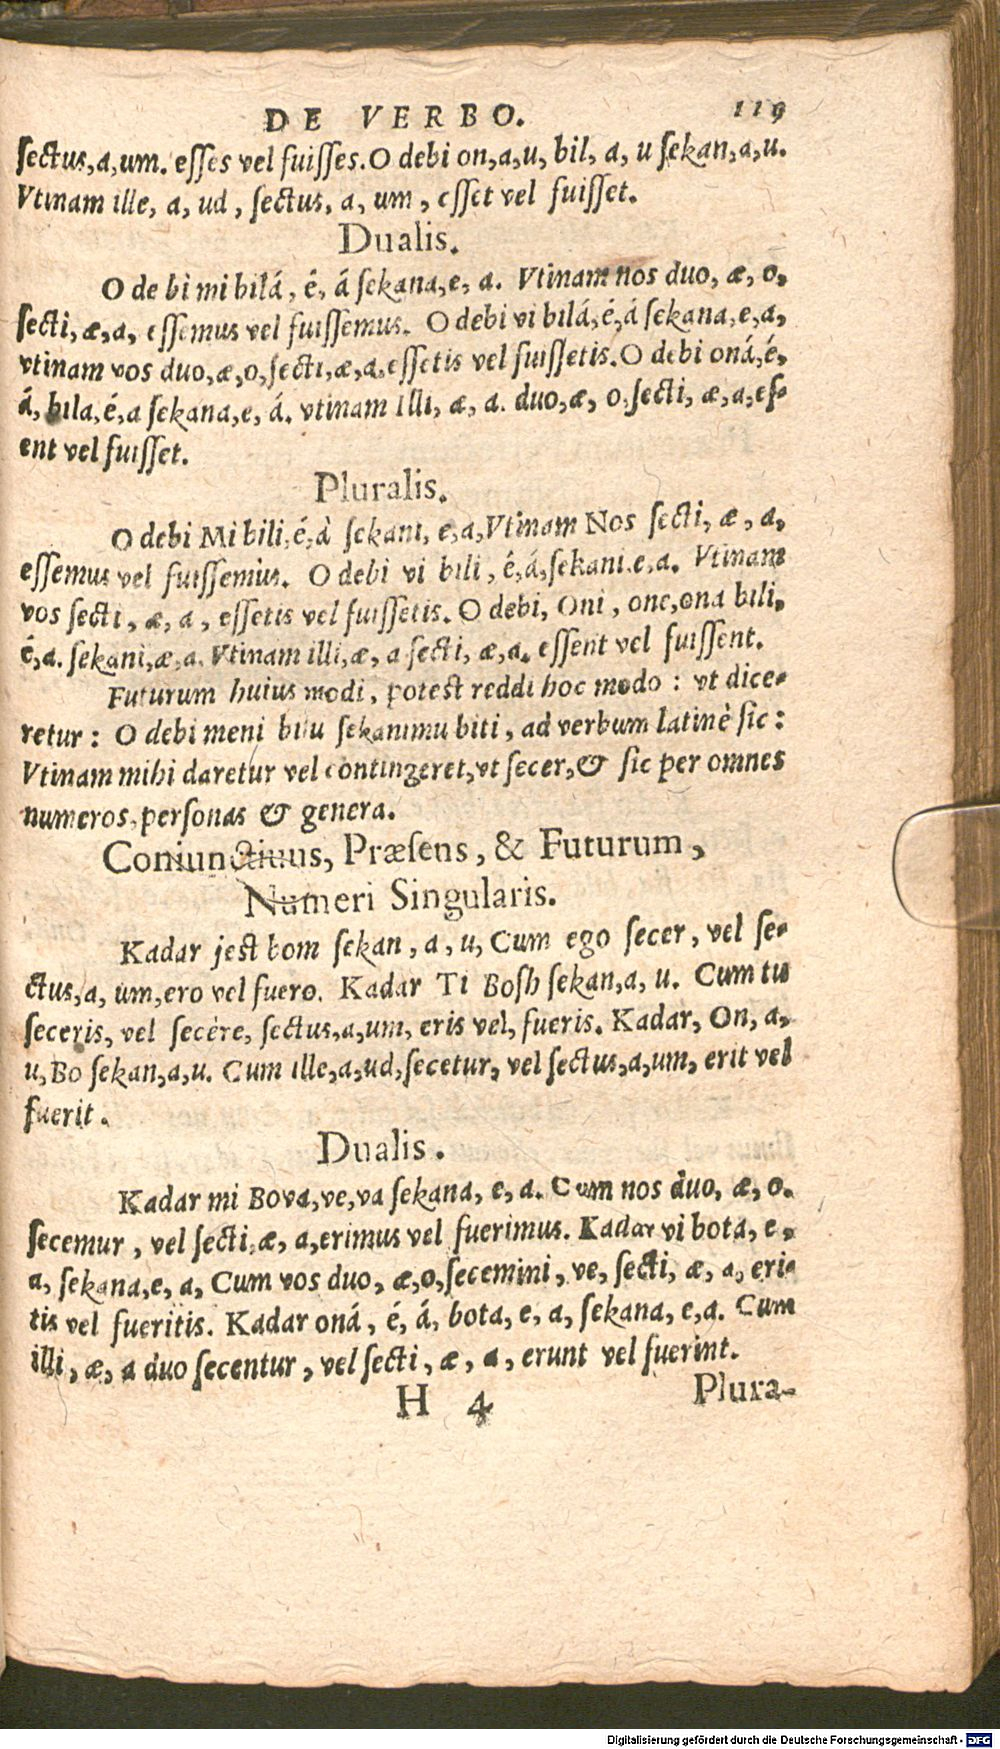 DE VERBO. 119
ſectus,a,um. eſſes vel fuiſſes.O debi on,a,u, bil, a, u ſekan,a,u.
Vtinam ille, a, ud, ſectus, a, um, eſſet vel fuiſſet.
Dualis.
O de bi mi bilá, é, á ſekana,e, a. Vtinam nos duo, æ, o,
ſecti,æ,a, eſſemus vel fuiſſemus. O debi vi bilá,é,á ſekana,e,a,
vtinam vos duo,æ,o,ſecti,æ,a,eſſetis vel fuiſſetis.O debi oná,é,
á, bila,é,a ſekana,e, á. vtinam illi, æ, a. duo,æ, o,ſecti, æ,a,eſ-
ent vel fuiſſet.
Pluralis.
O debi Mi bili,é,à ſekani, e,a,Vtinam Nos ſecti, æ, a,
eſſemus vel fuiſſemius. O debi vi bili, é,á,ſekani.e,a. Vtinam
vos ſecti, æ, a, eſſetis vel fuiſſetis. O debi, Oni, one,ona bili,
é,a. ſekani,æ,a. Vtinam illi,æ, a ſecti, æ,a. eſſent vel fuiſſent.
Futurum huius modi, poteſt reddi hoc modo: vt dice-
retur: O debi meni bilu ſekanimu biti, ad verbum latinè ſic:
Vtinam mihi daretur vel contingeret,vt ſecer,& ſic per omnes
numeros, perſonas & genera.
Coniunctiuus, Præſens, & Futurum,
Numeri Singularis.
Kadar jeſt bom ſekan, a, u, Cum ego ſecer, vel ſe-
ctus,a, um,ero vel fuero. Kadar Ti Boſh ſekan,a, u. Cum tu
ſeceris, vel ſecère, ſectus,a,um, eris vel, fueris. Kadar, On, a,
u, Bo ſekan,a,u. Cum ille,a,ud,ſecetur, vel ſectus,a,um, erit vel
fuerit.
Dualis.
Kadar mi Bova,ve,va ſekana, e, a. Cum nos duo, æ, o.
ſecemur, vel ſecti,æ, a,erimus vel fuerimus. Kadar vi bota, e,
a, ſekana,e, a, Cum vos duo, æ,o,ſecemini, ve, ſecti, æ, a, eri-
tis vel fueritis. Kadar oná, é, á, bota, e, a, ſekana, e,a. Cum
illi, æ, a duo ſecentur, vel ſecti, æ, a, erunt vel fuerint.
H 4 Plura-
Digitalisierung gefördert durch die Deutsche Forschungsgemeinschaft - DFG